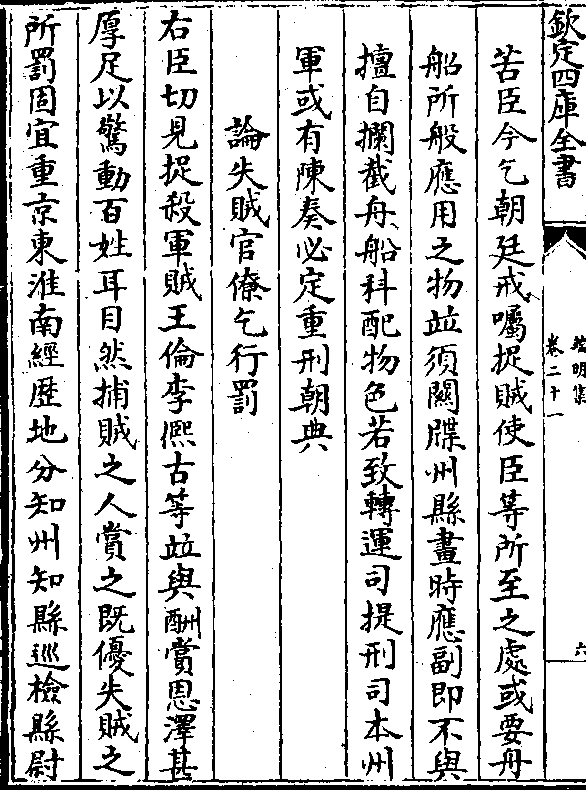 欽定四庫全書
端明集
卷二十一
六
苦臣今乞朝廷戒囑捉賊使臣等所至之處或要舟
船所般應用之物並須關牒州縣畫時應副即不與
擅自攔截舟船科配物色若致轉運司提刑司本州
軍或有陳奏必定重刑朝典
論失賊官僚乞行罰
右臣切見捉殺軍賊王倫李熈古等並與酬賞恩澤甚
厚足以驚動百姓耳目然捕賊之人賞之既優失賊之
所罰固宜重京東淮南經歴地分知州知縣巡檢縣尉